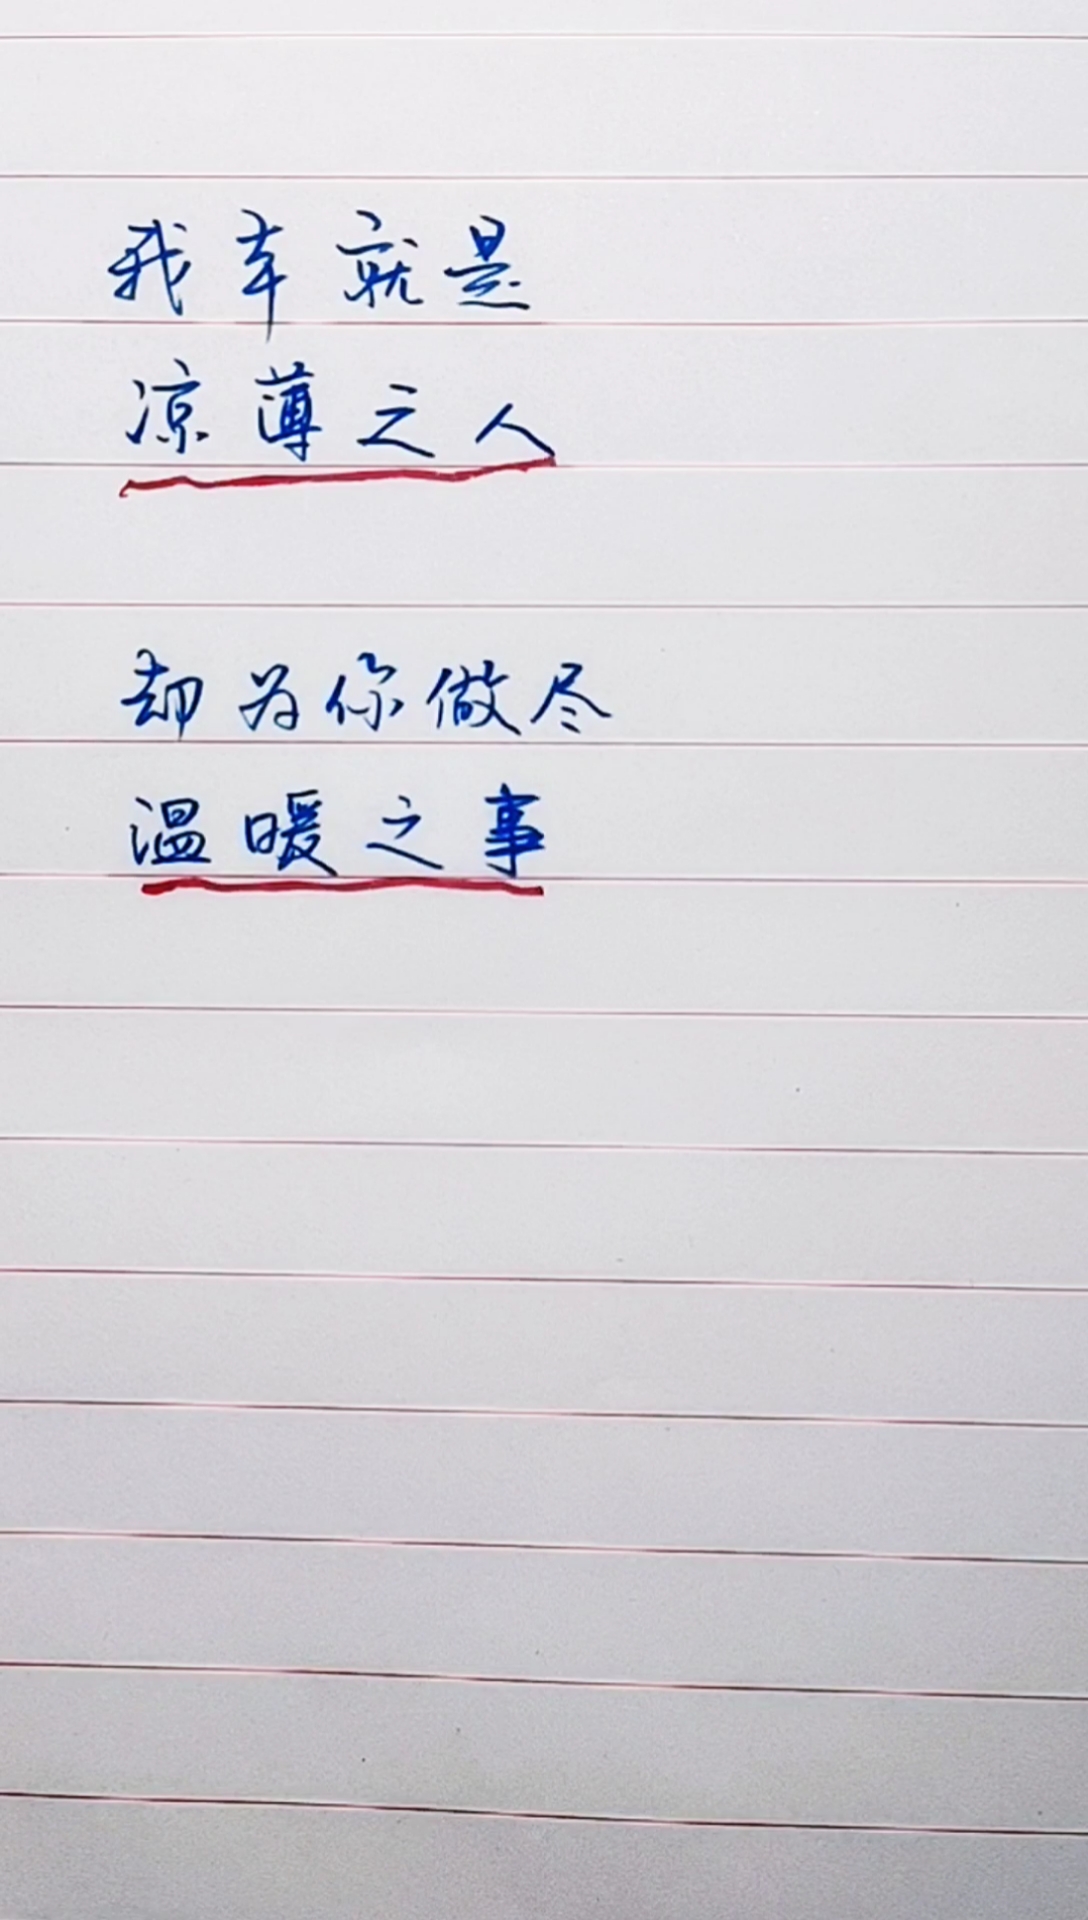 我本就是
凉薄之人
却为你做尽
温暖之事